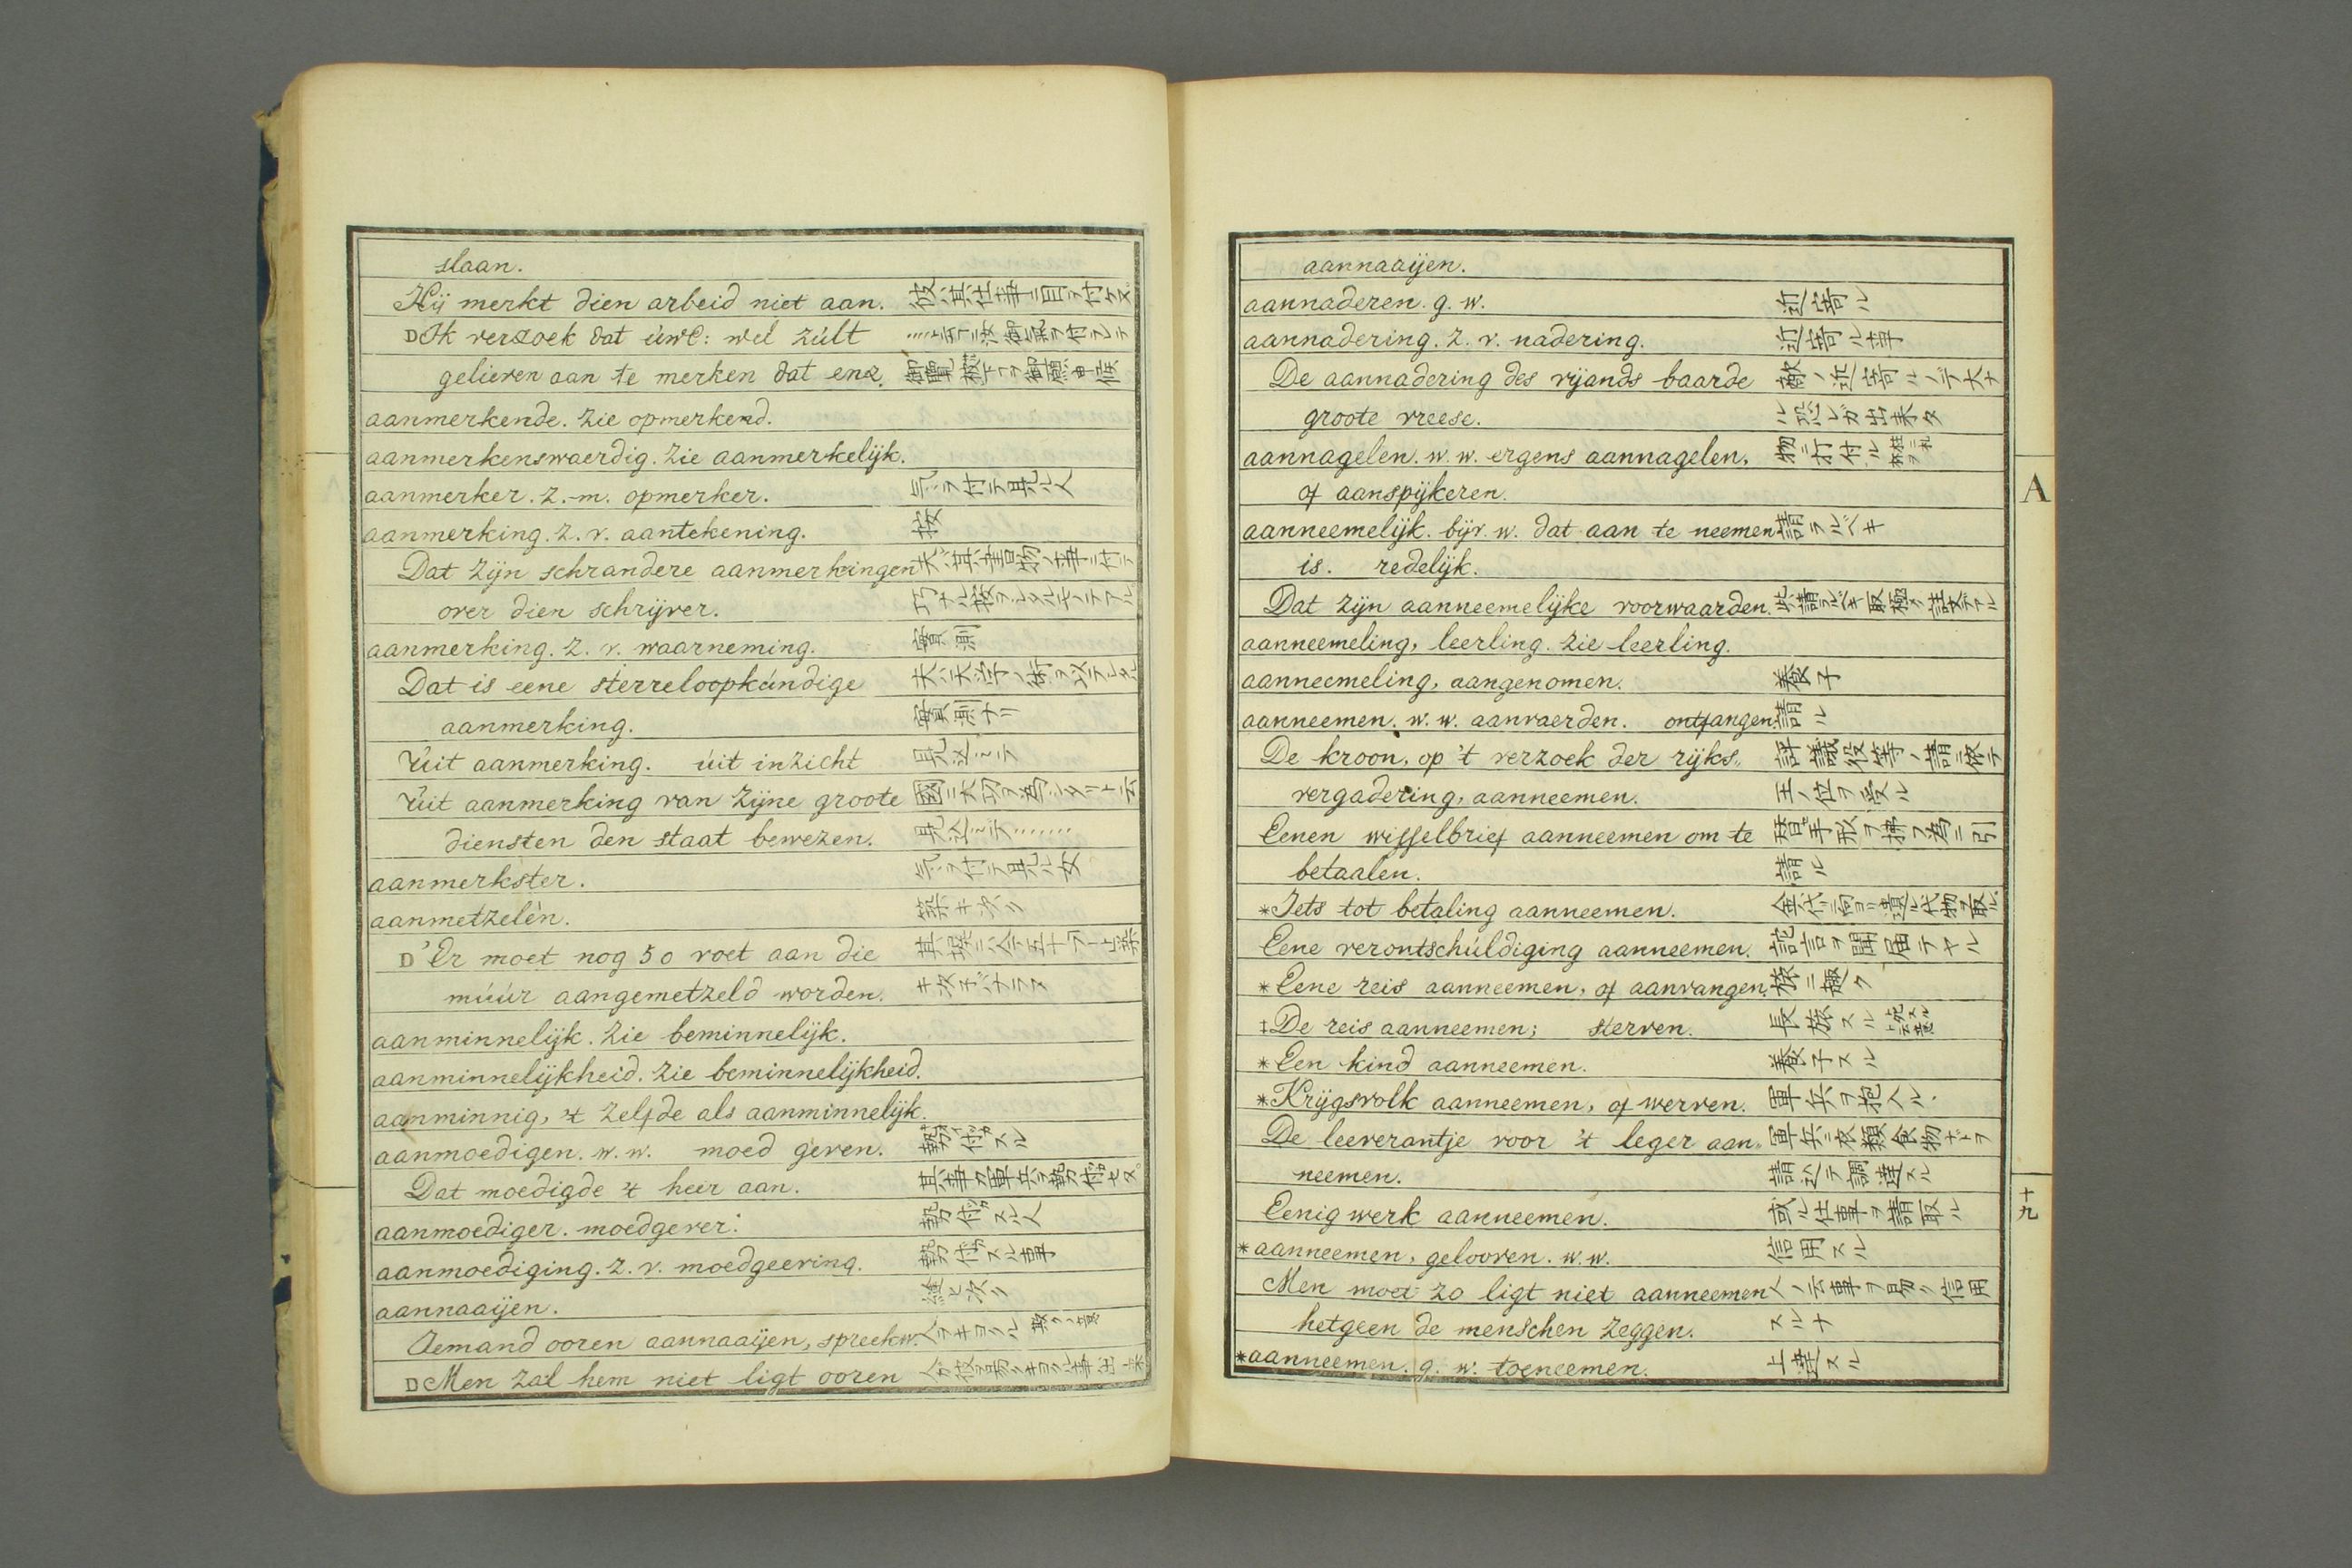 slaan.
Hij merkt dien arbeid niet aan. 彼ハ其仕事ニ目ヲ付ケヌ
DIk verzoek dat úwE: wel zúlt
gelieven aan te merken dat enz.
aanmerkende. zie opmerkend.
aanmerkenswaerdig. zie aanmerkelijk.
aanmerker. z.-m. opmerker. 気ヲ付テ見ル人
aanmerking. z. v. aantekening. 按
Dat zijn schrandere aanmerkingen 夫ハ其書物ノ事ニ付テ
over dien schrijver. 巧ナル按ヲシタルモノデアル
aanmerking. z. v. waarneming. 實測
Dat is eene sterreloopkúndige 夫ハ天学ノ術ヲ以テシタル
aanmerking. 實測ナリ
Úit aanmerking. úit inzicht 見込ミテ
Úit aanmerking van zijne groote 國ニ大功ヲ為シタリト云
diensten den staat bewezen. 見込ミテ……
aanmerkster. 気ヲ付テ見ル女
aanmetzelen. 築キ次ク
D'Er moet nog 50 voet aan die
múúr aangemetzeld worden. キ次子バナラヌ
aanminnelijk. zie beminnelijk.
aanminnelijkheid. zie beminnelijkheid.
aanminnig, 't zelfde als aanminnelijk.
aanmoedigen. w. w. moed geven. 勢付スル
Dat moedigde 't heer aan. 其事ガ軍兵ヲ勢付セタ
aanmoediger. moedgever. 勢付スル人
aanmoediging. z. v. moedgeering. 勢付スル事
aannaaijen. 縫ヒ次ク
Iemand ooren aannaaijen, spreekw.
DMen zal hem niet ligt ooren
aannaaijen.
aannaderen. g. w. 近寄ル
aannadering. z. v. nadering. 近寄ル事
De aannadering des vijands baarde 敵ノ近寄ルノデ大ナ
groote vreese. ル恐レガ出来タ
aannagelen. w. w. ergens aannagelen, 物ニ打付ル
of aanspijkeren.
aanneemelijk. bijv. w. dat aan te neemen 請ラルベキ
is. redelijk.
Dat zijn aanneemelijke voorwaarden.
aanneemeling, leerling. zie leerling.
aanneemeling, aangenomen. 養子
aanneemen. w. w. aanvaerden. ontfangen. 請ル
De kroon, op 't verzoek der rijks„ 評議役等ノ請ニ依テ
vergadering, aanneemen. 王ノ位ヲ受ル
Eenen wisselbrief aanneemen om te 替セ手形ヲ拂フ為ニ引
betaalen. 請ル
*Iets tot betaling aanneemen.
Eene verontschúldiging aanneemen. 詫言ヲ聞届テヤル
*Eene reis aanneemen, of aanvangen. 旅ニ趣ク
‡De reis aanneemen; sterven. 長旅スル
*Een kind aanneemen. 養子スル
*Krijgsvolk aanneemen, of werven. 軍兵ヲ抱入ル
De leeverantje voor 't leger aan„ 軍兵ニ衣類食物ナドヲ
neemen. 請込テ調達スル
Eenig werk aanneemen. 或ル仕事ヲ請取ル
*aanneemen, gelooven. w. w. 信用スル
Men moet zo ligt niet aanneemen 人ノ云事ヲ易ク信用
hetgeen de menschen zeggen. スルナ
*aanneemen. g. w. toeneemen. 上達スル
A
十九